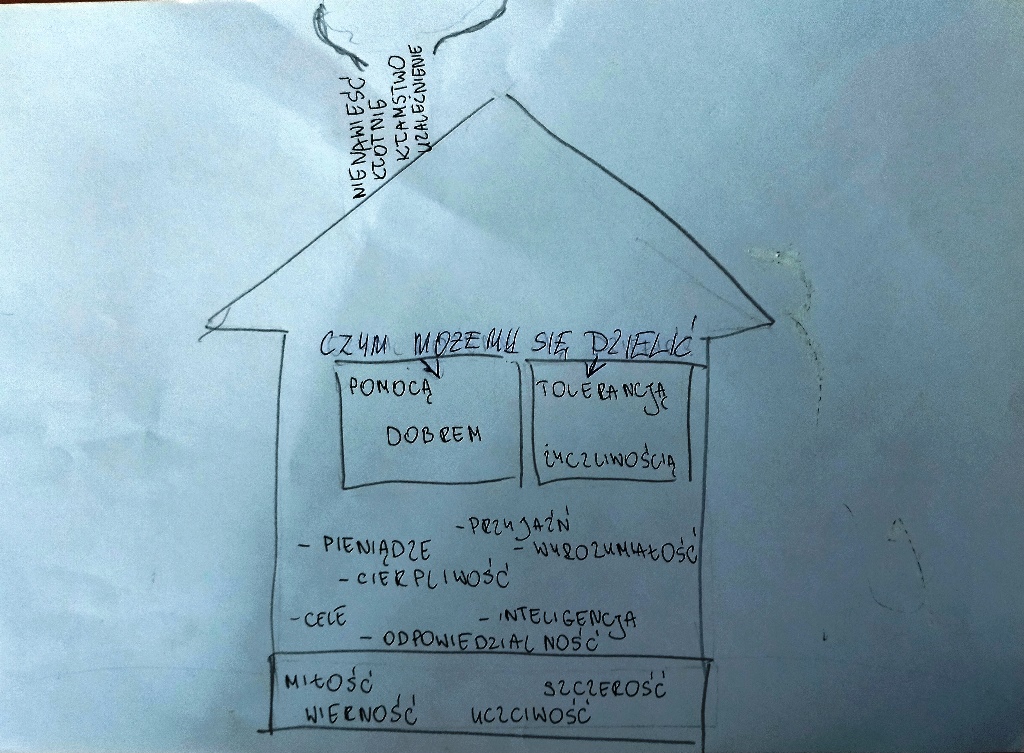 NIENAWIEŚĆ
KŁÓTNIE
KŁAMSTWO
UZALEŻNIENIE
CZYM MOŻEMY SIĘ DZIELIĆ
POMOCĄ
DOBREM
TOLERANCJĄ
ŻYCZLIWOŚCIĄ
- PRZYJAŹŃ
- PIENIĄDZE
- WYROZUMIAŁOŚĆ
- CIERPLIWOŚĆ
- CELE
- INTELIGENCJA
- ODPOWIEDZIALNOŚĆ
MIŁOŚĆ
SZCZEROŚĆ
WIERNOŚĆ
UCZCIWOŚĆ